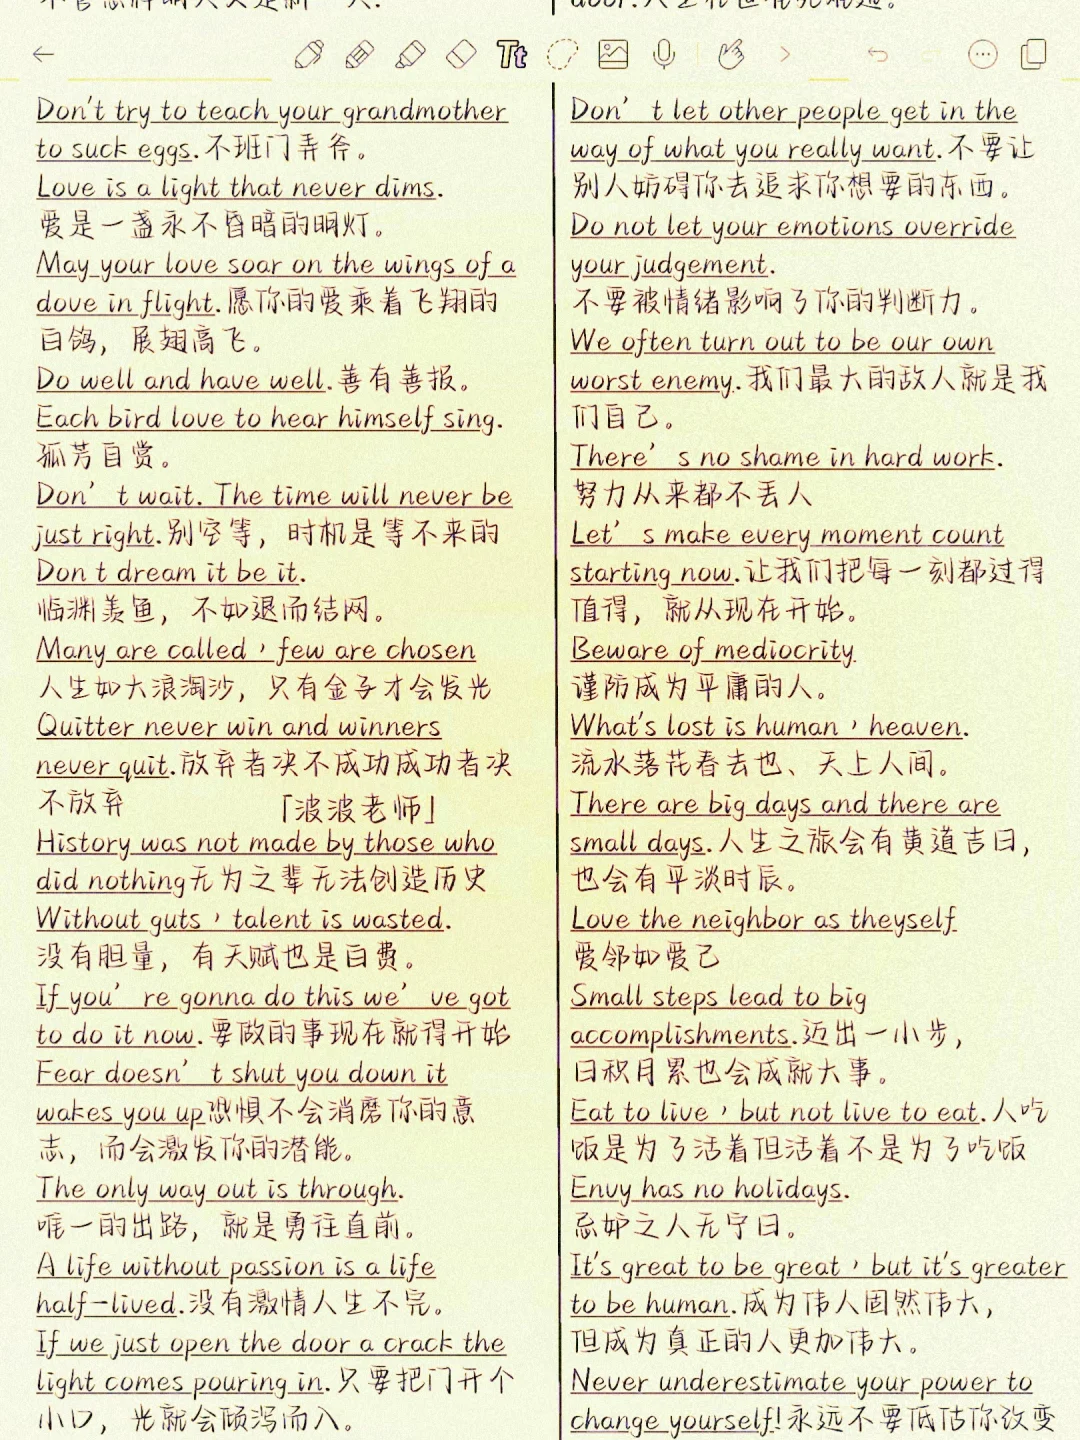 Tt
Don't try to teach your grandmother
to suck eggs.不班门弄斧。
Love is a light that never dims.
爱是一盏永不昏暗的明灯。
May your love soar on the wings of a
dove in flight.愿你的爱乘着飞翔的
白鸽，展翅高飞。
Do well and have well.善有善报。
Each bird love to hear himself sing.
孤芳自赏。
Don’t wait. The time will never be
just right.别空等，时机是等不来的
Don t dream it be it.
临渊羡鱼，不如退而结网。
Many are called，few are chosen
人生如大浪淘沙，只有金子才会发光
Quitter never win and winners
never quit.放弃者决不成功成功者决
不放弃
「波波老师」
History was not made by those who
did nothing无为之辈无法创造历史
Without guts，talent is wasted.
没有胆量，有天赋也是白费。
If you’re gonna do this we’ve got
to do it now.要做的事现在就得开始
Fear doesn’t shut you down it
wakes you up恐惧不会消磨你的意
志，而会激发你的潜能。
The only way out is through.
唯一的出路，就是勇往直前。
A life without passion is a life
half-lived.没有激情人生不完。
If we just open the door a crack the
light comes pouring in.只要把门开个
小口，光就会倾泻而入。
Don’t let other people get in the
way of what you really want.不要让
别人妨碍你去追求你想要的东西。
Do not let your emotions override
your judgement.
不要被情绪影响了你的判断力。
We often turn out to be our own
worst enemy.我们最大的敌人就是我
们自己。
There’s no shame in hard work.
努力从来都不丢人
Let’s make every moment count
starting now.让我们把每一刻都过得
值得，就从现在开始。
Beware of mediocrity
谨防成为平庸的人。
What's lost is human，heaven.
流水落花春去也、天上人间。
There are big days and there are
small days.人生之旅会有黄道吉日，
也会有平淡时辰。
Love the neighbor as theyself
爱邻如爱己
Small steps lead to big
accomplishments.迈出一小步，
日积月累也会成就大事。
Eat to live，but not live to eat.人吃
饭是为了活着但活着不是为了吃饭
Envy has no holidays.
忌妒之人无宁日。
It's great to be great，but it's greater
to be human.成为伟人固然伟大，
但成为真正的人更加伟大。
Never underestimate your power to
change yourself!永远不要低估你改变